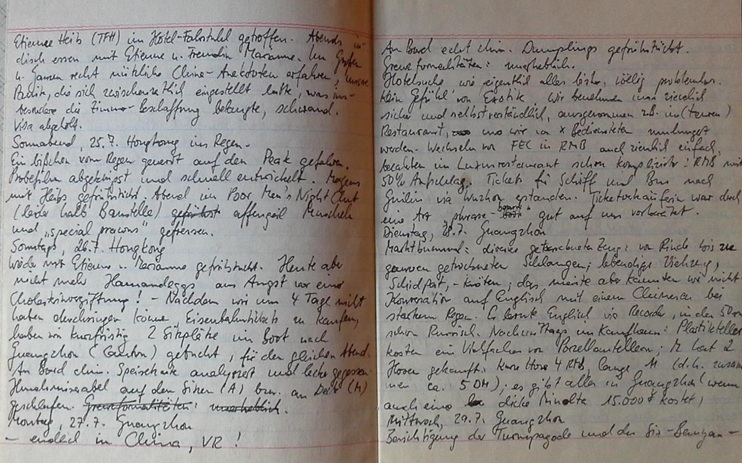 Etienne Heib (TFH) im Hotel-Fahrstuhl getroffen. Abends
disch essen mit Etienne u. Freundin Marianne. Im Großen
u. Ganzen recht nützliche China-Anekdoten erfahren, unsere
Panik, die sich zwischenzeitlich eingestellt hatte, was ins-
besondere die Zimmer-beschaffung betraf, schwand.
Visa abgeholt.
Sonnabend, 25.7. Hongkong im Regen.
Ein bißchen vom Regen genervt auf den Peak gefahren.
Probefilm abgeknipst und schnell entwickelt. Morgens
mit Heibs gefrühstückt Abend im Poor Men's Night Club
(leider halb Baustelle) affengeil Muscheln
und "special prawns" gefressen.
Sonntag, 26.7. Hongkong
Wieder mit Etienne u. Marianne gefrühstückt. Heute aber
nicht mehr Hamandeggs aus Angst vor einer
Cholesterinvergiftung! - Nachdem wir um 4 Tage nicht
haben Eisenbahntickets zu kaufen,
haben wir kurzfristig 2 Sitzplätze im Boot nach
Guangzhou (Canton) gebucht, für den gleichen Abend.
An Bord chin. Speisekarte analysiert und lecker gegessen.
auf den Sitzen (A) bzw. an Deck (M)
geschlafen. Grenzformalitäten: unerheblich.
Montag, 27.7. Guangzhou
- endlich in China, VR!
An Bord echt chin. Dumplings gefrühstückt.
Grenzformalitäten: unerheblich.
Hotelsuche, wie eigentlich alles bisher, völlig problemlos.
Kein Gefühl von Exotik. Wir benehmen uns ziemlich
sicher und selbstverständlich, ausgenommen z.B. im (teuren)
Restaurant, wo wir von x Bediensteten umlungert
werden. Wechseln von FEC in RMB auch ziemlich einfach,
bezahlen im Luxusrestaurant schon komplizierter: RMB mit
50% Aufschlag. Tickets für Schiff und Bus nach
Guilin via Wuzhou erstanden. Ticketverkäuferin war durch
eine Art phrase-book gut auf uns vorbereitet.
Dienstag, 28.7. Guangzhou
Marktbummel: diverse getrocknete Zeug: von Rinde bis zu
ganzen getrockneten Schlangen; lebendige Viehzeug,
Schildpatt, -kröten; das meiste aber kannten wir nicht
Konversation auf Englisch mit einem Chinesen bei
starkem Regen. E. lernte Englisch via Records, in den 50ern
schon Russisch. Nachmittags im Kaufhaus: Plastikteller
kosten ein Vielfaches von Porzellantellern; M kauft 2
Hosen gekauft: Kurze Hose 4 RMB lange 11 (d.h. zusam-
men ca. 5 DM); es gibt alles in Guangzhou (wenn
auch eine dicke Minolta 15.000 $ kostet)
Mittwoch, 29.7. Guangzhou
Besichtigung der Turmpagode und der Six-Banyan-